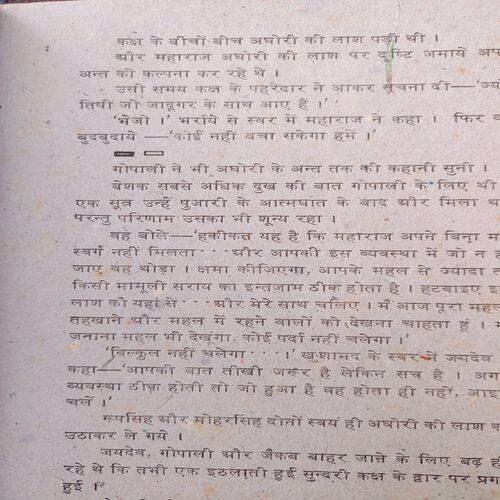 कक्ष के बीचों बीच अघोरी की लाश पड़ी थी ।
और महाराज अघोरी की लाश पर दृष्टि जमाये अप
अन्त की कल्पना कर रहे थे ।
उसी समय कक्ष के पहरेदार ने आकर सूचना दी—'ज्यो
तिषी जी जादूगर के साथ आए हैं ।'
'भेजो ।' भर्राये से स्वर में महाराज ने कहा । फिर व
बुदबुदाये —'कोई नहीं बचा सकेगा हमें ।'
गोपाली ने भी अघोरी के अन्त तक की कहानी सुनी ।
बेशक सबसे अधिक दुख की बात गोपाली के लिए थी
एक सूत्र उन्हें पुजारी के आत्मघात के बाद और मिला था
परन्तु परिणाम उसका भी शून्य रहा ।
वह बोले—'हकीकत यह है कि महाराज अपने बिना म
स्वर्ग नहीं मिलता···और आपकी इस व्यवस्था में जो न ह
जाए वह थोड़ा । क्षमा कीजिएगा, आपके महल से ज्यादा
किसी मामूली सराय का इन्तजाम ठीक होता है । हटवाइए इ
लाश को यहां से···और मेरे साथ चलिए । मैं आज पूरा महल
तहखाने और महल में रहने वालों को देखना चाहता हूं ।
जनाना महल भी देखूंगा, कोई पर्दा नहीं चलेगा ।'
'बिल्कुल नहीं चलेगा····।' खुशामद के स्वर में जयदेव
कहा—'आपकी बात तीखी जरूर है लेकिन सच है । अग
व्यवस्था ठीक होती तो जो हुआ है वह होता ही नहीं, आइ
चलें ।'
रूपसिंह और मोहरसिंह दोनों स्वयं ही अघोरी की लाश क
उठाकर ले गये ।
जयदेव, गोपाली और जैकब बाहर जाने के लिए बढ़ ही
रहे थे कि तभी एक इठलाती हुई सुन्दरी कक्ष के द्वार पर प्रग
हुई ।